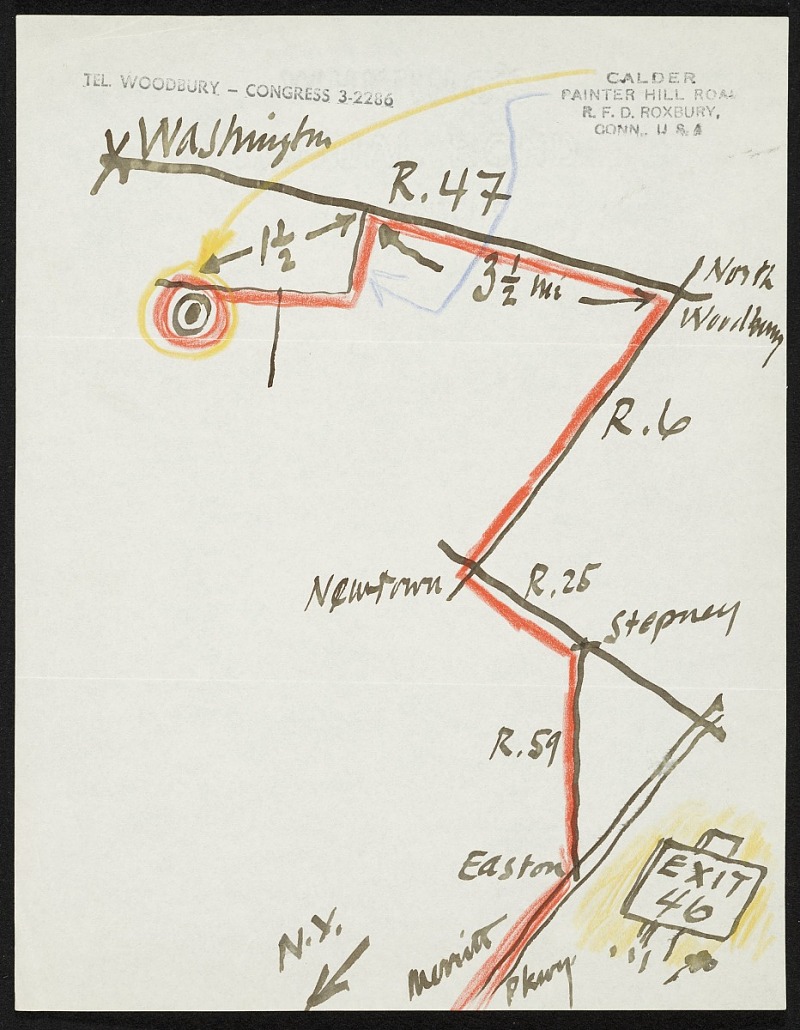 TEL. WOODBURY - CONGRESS 3-2286
CALDER
PAINTER HILL ROAD
R. F. D. ROXBURY,
CONN., U S A
Washington
R.47
1½
3½ mi
North
Woodbury
R.6
Newtown
R.25
Stepney
R.59
Easton
EXIT
46
N.Y.
Merritt
Pkwy